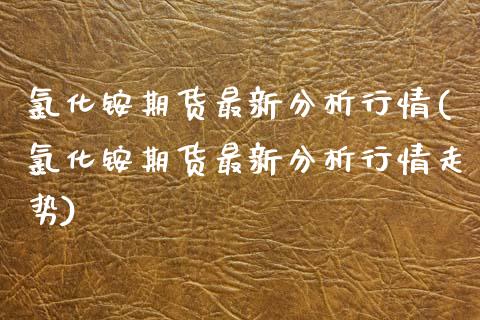 氯化铵期货最新分析行情(
氯化铵期货最新分析行情走
势)